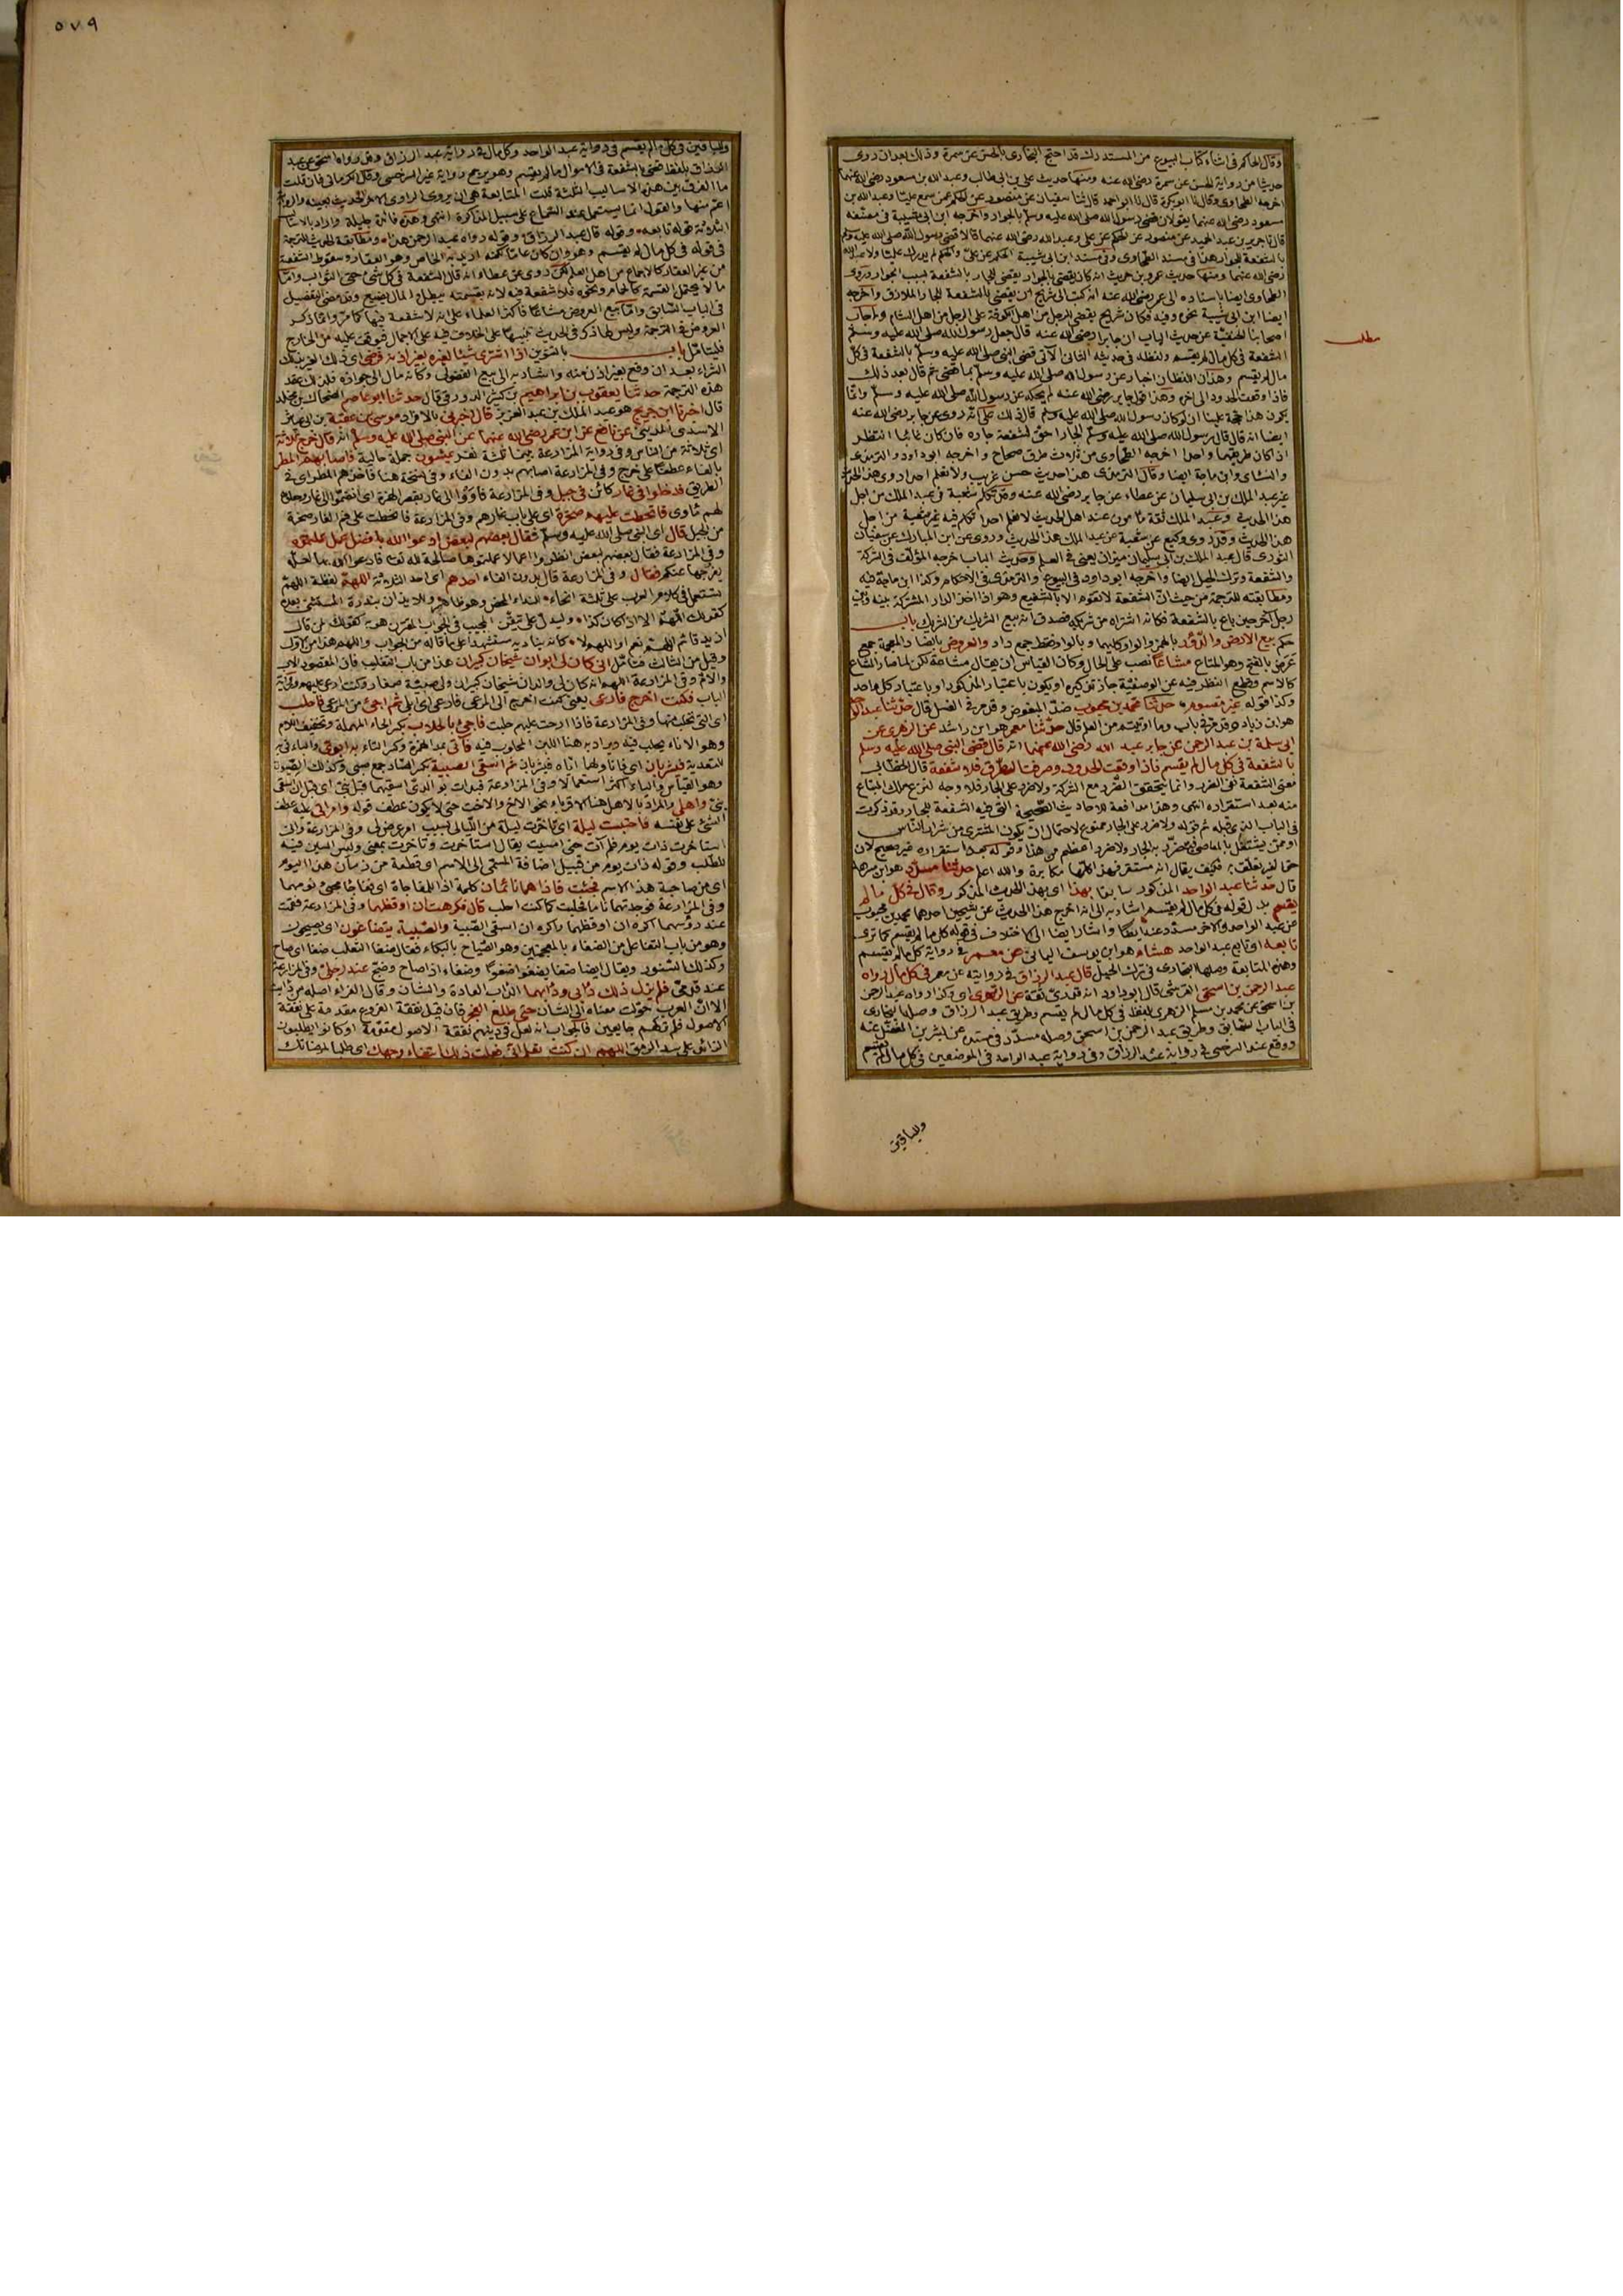 ٥٧٩
وقال الحاكم في اثناء كتاب البيوع من المستدرك قد احتج البخارى بالحسن عن سمرة وذلك بعد ان روى
حديثا من رواية الحسن عن سمرة رضى الله عنه ومنها حديث على بن ابى طالب وعبد الله بن مسعود رضى الله عنهما
اخرجه الطحاوى وقال ثنا ابو بكرة قال ثنا ابو احمد قال ثنا سفيان عن منصور عن الحكم عمن سمع عليا وعبد الله بن
مسعود رضى الله عنهما يقولان قضى رسول الله صلى الله عليه وسلم بالجوار واخرجه ابن ابى شيبة في مصنفه
قال ثنا جرير بن عبد الحميد عن منصور عن الحكم عن على وعبد الله رضى الله عنهما قالا قضى رسول الله صلى الله عليه وسلم
بالشفعة للجوار هذا في مسند الطحاوى وفى مسند ابن ابى شيبة الحكم عن على والحكم لم يدرك عليا ولا عبد الله
رضى الله عنهما ومنها حديث عمرو بن حريث انه كان يقضى بالجوار يقضى للجار بالشفعة بسبب الجوار وروى
الطحاوى ايضا باسناده الى عمر رضى الله عنه انه كتب الى شريح ان يقضى بالشفعة للجار الملازق واخرجه
ايضا ابن ابى شيبة نحوه وفيه فكان شريح يقضى للرجل من اهل الكوفة على الرجل من اهل الشام واجاب
اصحابنا الحنفية عن حديث الباب ان جابرا رضى الله عنه قال جعل رسول الله صلى الله عليه وسلم
مطلب
الشفعة في كل مال لم يقسم ولفظه في حديثه الثانى الآتى قضى النبى صلى الله عليه وسلم بالشفعة في كل
مال لم يقسم وهذان اللفظان اخبار عن رسول الله صلى الله عليه وسلم بما قضى ثم قال بعد ذلك
فاذا وقعت الحدود الى آخره وهذا قول جابر رضى الله عنه لم يحكه عن رسول الله صلى الله عليه وسلم وانما
يكون هذا حجة علينا ان لو كان رسول الله صلى الله عليه وسلم قال ذلك على انه روى عن جابر رضى الله عنه
ايضا انه قال قال رسول الله صلى الله عليه وسلم الجار احق بشفعة جاره فان كان غائبا انتظر
اذا كان طريقهما واحدا اخرجه الطحاوى من ثلاث طرق صحاح واخرجه ابو داود والترمذى
والنسائى وابن ماجة ايضا وقال الترمذى هذا حديث حسن غريب ولا نعلم احدا روى هذا الحديث
غير عبد الملك بن ابى سليمان عن عطاء عن جابر رضى الله عنه وقد تكلم شعبة في عبد الملك من اجل
هذا الحديث وعبد الملك ثقة مأمون عند اهل الحديث لا نعلم احدا تكلم فيه غير شعبة من اجل
هذا الحديث وقد روى وكيع عن شعبة عن عبد الملك هذا الحديث وروى عن ابن المبارك عن سفيان
الثورى قال عبد الملك بن ابى سليمان ميزان يعنى في العلم وحديث الباب اخرجه المؤلف في الشركة
والشفعة وترك الحيل ايضا واخرجه ابو داود في البيوع والترمذى في الاحكام وكذا ابن ماجة فيه
ومطابقته للترجمة من حيث ان الشفعة لا تقوم الا بالشفيع وهو اذا اخذ الدار المشتركة بينه وبين
رجل آخر حين باع بالشفعة فكانه اشتراه من شريكه فصدق انه بيع الشريك من الشريك باب
حكم بيع الارض والدور بالهمز والواو كليهما وبالواو فقط جمع دار والعروض بالضاد المعجمة جمع
عرض بالفتح وهو المتاع مشاعا نصب على الحال وكان القياس ان يقال مشاعة لكن لما صار المشاع
كالاسم وقطع النظر فيه عن الوصفية جاز تذكيره او يكون باعتبار المذكور او باعتبار كل واحد
وكذا قوله غير مقسوم حدثنا محمد بن محبوب ضد المبغوض وقد مر في الغسل قال حدثنا عبد الواحد
هو ابن زياد وقد مر في باب وما اوتيتم من العلم قال حدثنا معمر هو ابن راشد عن الزهرى عن
ابى سلمة بن عبد الرحمن عن جابر عبد الله رضى الله عنهما انه قال قضى النبى صلى الله عليه وسلم
بالشفعة في كل مال لم يقسم فاذا وقعت الحدود وصرفت الطرق فلا شفعة قال الخطابى
معنى الشفعة نفى الضرر وانما يتحقق الضرر مع الشركة ولا ضرر على الجار فلا وجه لنزع ملك المبتاع
منه بعد استقراره انتهى وهذا مدافعة للاحاديث الصحيحة التى فيه الشفعة للجار وقد ذكرت
في الباب الذى قبله ثم قوله ولا ضرر على الجار ممنوع لاحتمال ان يكون المشترى من شرار الناس
او ممن يشتغل بالمعاصى فيتضرر به الجار ولا ضرر اعظم من هذا وقوله بعد استقراره غير صحيح لان
حق الغير تعلق به فكيف يقال انه مستقر فهذا كلها مكابرة والله اعلم حدثنا مسدد هو ابن مسرهد
قال حدثنا عبد الواحد المذكور سابقا بهذا اى بهذا الحديث المذكور وقال في كل ما لم
يقسم بدل قوله في كل مال لم يقسم اشار به الى انه اخرج هذا الحديث عن شيخين احدهما محمد بن محبوب
عن عبد الواحد والآخر مسدد عنه ايضا واشار ايضا الى الاختلاف في قوله كل ما لم يقسم كما ترى
تابعه اى تابع عبد الواحد هشام هو ابن يوسف اليمانى عن معمر في رواية كل ما لم يقسم
وهذه المتابعة وصلها البخارى في ترك الحيل قال عبد الرزاق في روايته عن معمر في كل مال رواه
عبد الرحمن بن اسحق القرشى قال ابو داود انه قدرى ثقة عن الزهرى اى وكذا رواه عبد الرحمن
بن اسحق عن محمد بن مسلم الزهرى بلفظ في كل مال لم يقسم وطريق عبد الرزاق وصلها البخارى
في الباب السابق وطريق عبد الرحمن بن اسحق وصله مسدد في مسنده عن بشر بن المفضل عنه
ووقع عند السرخسى في رواية عبد الرزاق وفى رواية عبد الواحد في الموضعين في كل مال لم يقسم
وللباقين
وللباقين في كل ما لم يقسم في رواية عبد الواحد وكل مال في رواية عبد الرزاق وقد رواه اسحق عن عبد
الرزاق بلفظ قضى بالشفعة في الاموال ما لم يقسم وهو يرجح رواية غير السرخسى وقال الكرمانى فان قلت
ما الفرق بين هذه الاساليب الثلثة قلت المتابعة هى ان يروى الراوى الآخر الحديث بعينه والرواية
اعم منها والقول انما يستعمل عند السماع على سبيل المذاكرة انتهى وهذه فائدة جليلة واراد بالاساليب
الثلاثة قوله تابعه وقوله قال عبد الرزاق وقوله رواه عبد الرحمن هذا ومطابقة الحديث للترجمة
في قوله في كل مال لم يقسم وهو وان كان عاما لكنه اريد به الخاص وهو العقار وسقوط الشفعة
من غير العقار كالاجماع من اهل العلم لكن روى عن عطاء انه قال الشفعة في كل شئ حتى الثواب واما
ما لا يحتمل القسمة كالحمام ونحوه فلا شفعة فيه لانه بقسمته يبطل والمال يضيع وقد مضى التفصيل
في الباب السابق واما بيع العروض مشاعا فاكثر العلماء على انه لا شفعة فيها كما مر وانما ذكر
العروض في الترجمة وليس لها ذكر في الحديث تنبيها على الخلاف فيه على الاجمال فيوقف عليه من الخارج
فليتأمل باب بالتنوين اذا اشترى شيئا لغيره بغير اذنه فرضى اى ذلك الغير بذلك
الشراء بعد ان وقع بغير اذن منه واشار به الى بيع الفضولى وكانه مال الى جوازه فلذلك عقد
هذه الترجمة حدثنا يعقوب بن ابراهيم بن كثير الدورقى قال حدثنا ابو عاصم الضحاك بن مخلد
قال اخبرنا ابن جريج هو عبد الملك بن عبد العزيز قال اخبرنى بالافراد موسى بن عقبة بن ابى عياش
الاسدى المدينى عن نافع عن ابن عمر رضى الله عنهما عن النبى صلى الله عليه وسلم انه قال خرج ثلاثة
اى ثلاثة من الناس وفى رواية المزارعة بينما ثلثة نفر يمشون جملة حالية فاصابهم المطر
بالفاء عطفا على خرج وفى المزارعة اصابهم بدون الفاء وفى نسخة هنا فاخذهم المطر اى في
الطريق فدخلوا في غار كائن في جبل وفى المزارعة فاووا الى غار بقصر الهمزة اى انضموا الى غار وجعلوه
لهم مأوى فانحطت عليهم صخرة اى على باب غارهم وفى المزارعة فانحطت على فم الغار صخرة
من الجبل قال اى النبى صلى الله عليه وسلم فقال بعضهم لبعض ادعوا الله بافضل عمل عملتموه
وفى المزارعة فقال بعضهم لبعض انظروا اعمالا عملتموها صالحة لله تعالى فادعوا الله بها لعله
يفرجها عنكم فقال وفى المزارعة قال بدون الفاء احدهم اى احد الثلاثة اللهم لفظة اللهم
تستعمل في كلام العرب على ثلثة انحاء للنداء المحض وهو ظاهر وللايذان بندرة المستثنى بعده
كقولك اللهم الا اذا كان كذا وليدل على تيقن المجيب في الجواب المقترن هو به كقولك لمن قال
ازيد قائم اللهم نعم او اللهم لا كانه يناديه مستشهدا على ما قاله من الجواب واللهم هذا من الاول
وقيل من الثالث فتأمل انى كان لى ابوان شيخان كبيران هذا من باب التغليب فان المقصود الاب
والام وفى المزارعة اللهم انه كان لى والدان شيخان كبيران ولى صبية صغار وكنت ارعى عليهم وفى
الباب فكنت اخرج فارعى يعنى كنت اخرج الى المرعى فارعى اى ابلى ثم اجئ من المرعى فاحلب
اى التى تحلب منها وفى المزارعة فاذا ارحت عليهم حلبت فاجئ بالحلاب بكسر الحاء المهملة وتخفيف اللام
وهو الاناء يحلب فيه ويراد به هنا اللبن المحلوب فيه فآتى بمد الهمزة وكسر التاء به ابوى والباء فى به
للتعدية فيشربان اى فاناولهما اناه فيشربان ثم اسقى الصبية بكسر الصاد جمع صبى وكذلك الصبوة
وهو القياس والياء اكثر استعمالا وفى المزارعة فبدأت بوالدى اسقيهما قبل بنى اى قبل ان اسقى
بنى واهلى والمراد بالاهل هنا الاقرباء نحو الاخ والاخت حتى لا يكون عطف قوله وامرأتى عليه عطف
الشئ على نفسه فاحتبست ليلة اى تأخرت ليلة من الليالى بسبب امر عرض لى وفى المزارعة وانى
استأخرت ذات يوم فلم آت حتى امسيت يقال استأخرت وتأخرت بمعنى وليس السين فيه
للطلب وقوله ذات يوم من قبيل اضافة المسمى الى الاسم اى قطعة من زمان هذا اليوم
اى من صاحبة هذا الاسم فجئت فاذا هما نائمان كلمة اذا للمفاجاة اى تفاجأ مجيئى نومهما
وفى المزارعة فوجدتهما ناما فحلبت كما كنت احلب قال فكرهت ان اوقظهما وفى المزارعة فقمت
عند رؤسهما اكره ان اوقظهما واكره ان اسقى الصبية والصبية يتضاغون اى يصيحون
وهو من باب التفاعل من الضغاء بالمعجمتين وهو الصياح بالبكاء يقال ضغا الثعلب ضغا اى صاح
وكذلك السنور ويقال ايضا ضغا يضغو ضغوا وضغاء اذا صاح وضج عند رجلى وفى المزارعة
عند قدمى فلم يزل ذلك دأبى ودأبهما الدأب العادة والشأن وقال الفراء اصله من دأبت
الا ان العرب حولت معناه الى الشأن حتى طلع الفجر فان قيل نفقة الفروع مقدمة على نفقة
الاصول فلم تركهم جايعين فالجواب انه لعل في دينهم نفقة الاصول مقدمة او كانوا يطلبون
الزائد على سد الرمق اللهم ان كنت تعلم انى فعلت ذلك ابتغاء وجهك اى طلبا لمرضاتك